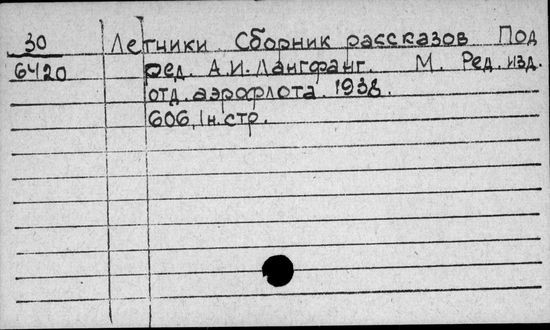 30 Летчики Сборник рассказов Под
6420 ред. А.И. Лангфанг. М. Ред. изд.
отд. аэрофлота 1938.
606, 1 н. стр.